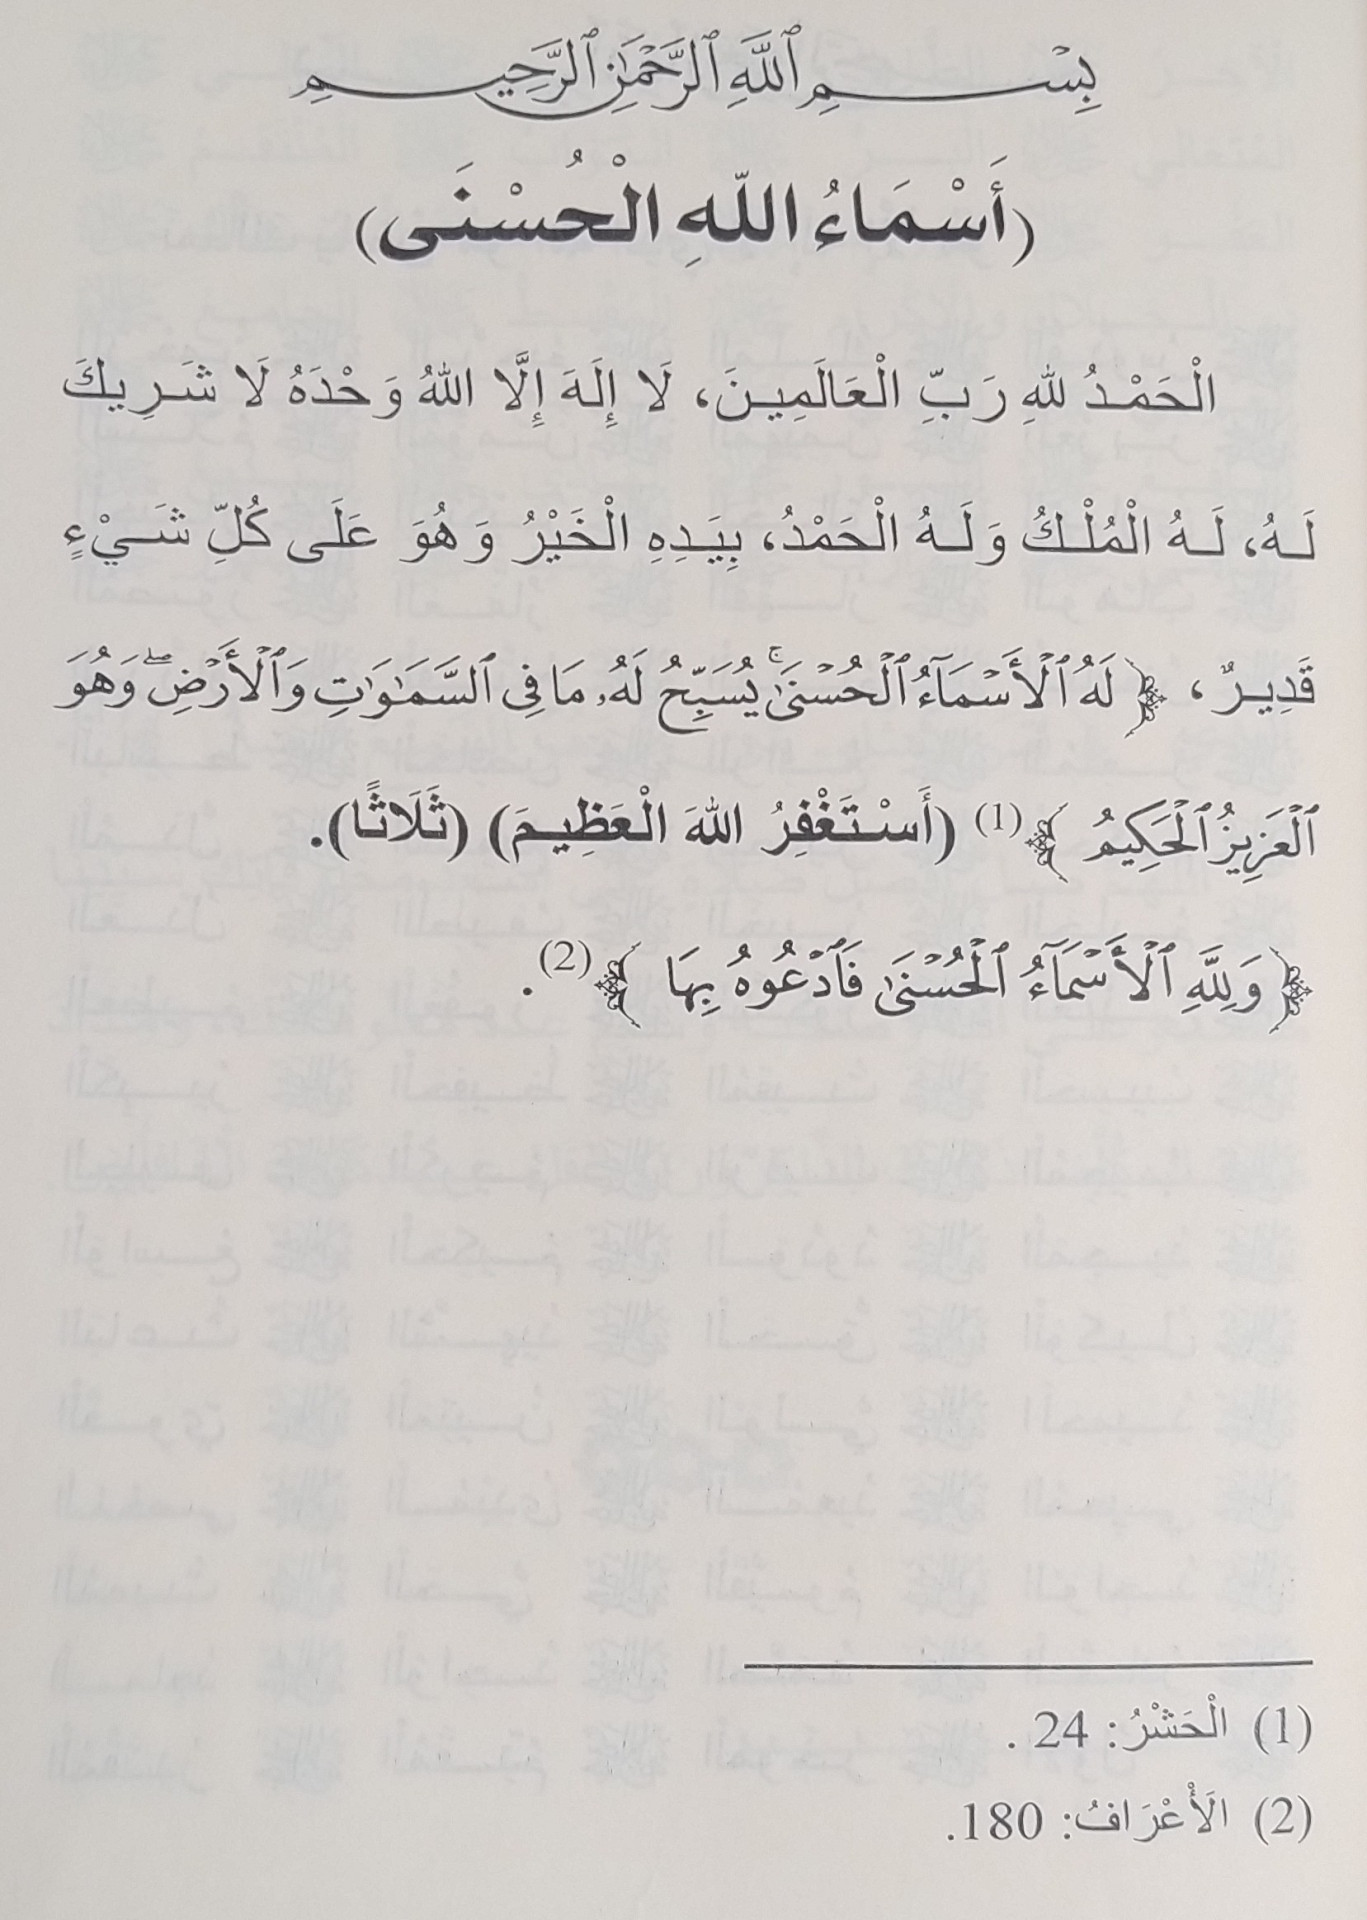 بِسْمِ ٱللَّهِ ٱلرَّحْمَٰنِ ٱلرَّحِيمِ
(أَسْمَاءُ اللهِ الْحُسْنَى)
الْحَمْدُ للهِ رَبِّ الْعَالَمِينَ، لَا إِلَهَ إِلَّا اللهُ وَحْدَهُ لَا شَرِيكَ
لَهُ، لَهُ الْمُلْكُ وَلَهُ الْحَمْدُ، بِيَدِهِ الْخَيْرُ وَهُوَ عَلَى كُلِّ شَيْءٍ
قَدِيرٌ، ﴿ لَهُ ٱلْأَسْمَآءُ ٱلْحُسْنَىٰۚ يُسَبِّحُ لَهُۥ مَا فِى ٱلسَّمَٰوَٰتِ وَٱلْأَرْضِۖ وَهُوَ
ٱلْعَزِيزُ ٱلْحَكِيمُ ﴾(1) (أَسْتَغْفِرُ اللهَ الْعَظِيمَ) (ثَلَاثًا).
﴿ وَلِلَّهِ ٱلْأَسْمَآءُ ٱلْحُسْنَىٰ فَٱدْعُوهُ بِهَا ﴾(2).
(1) الْحَشْرُ: 24 .
(2) الَأْعْرَافُ: 180.